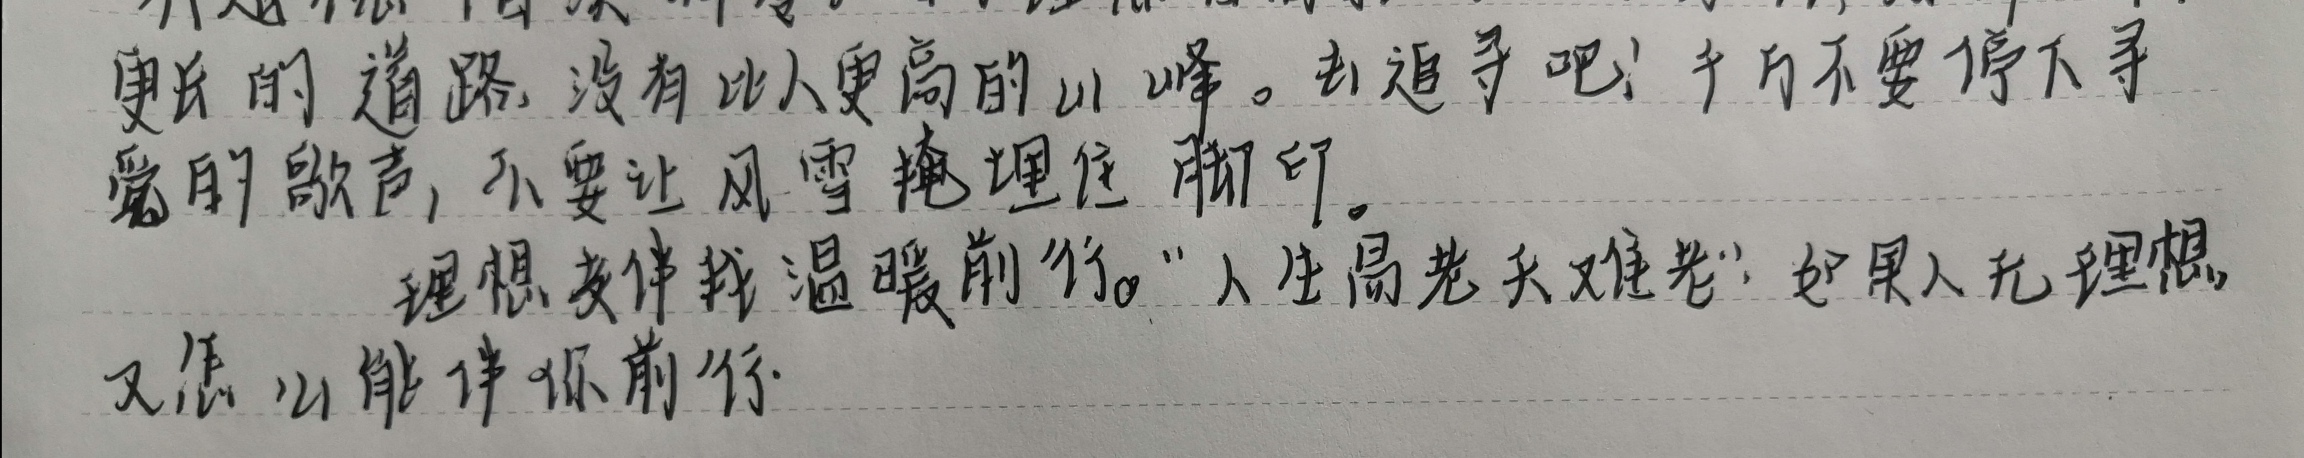 更长的道路，没有比人更高的山峰。去追寻吧！千万不要停下寻
觅的歌声，不要让风雪掩埋住脚印。
理想要伴我温暖前行。“人生易老天难老”；如果人无理想，
又怎么能伴你前行.